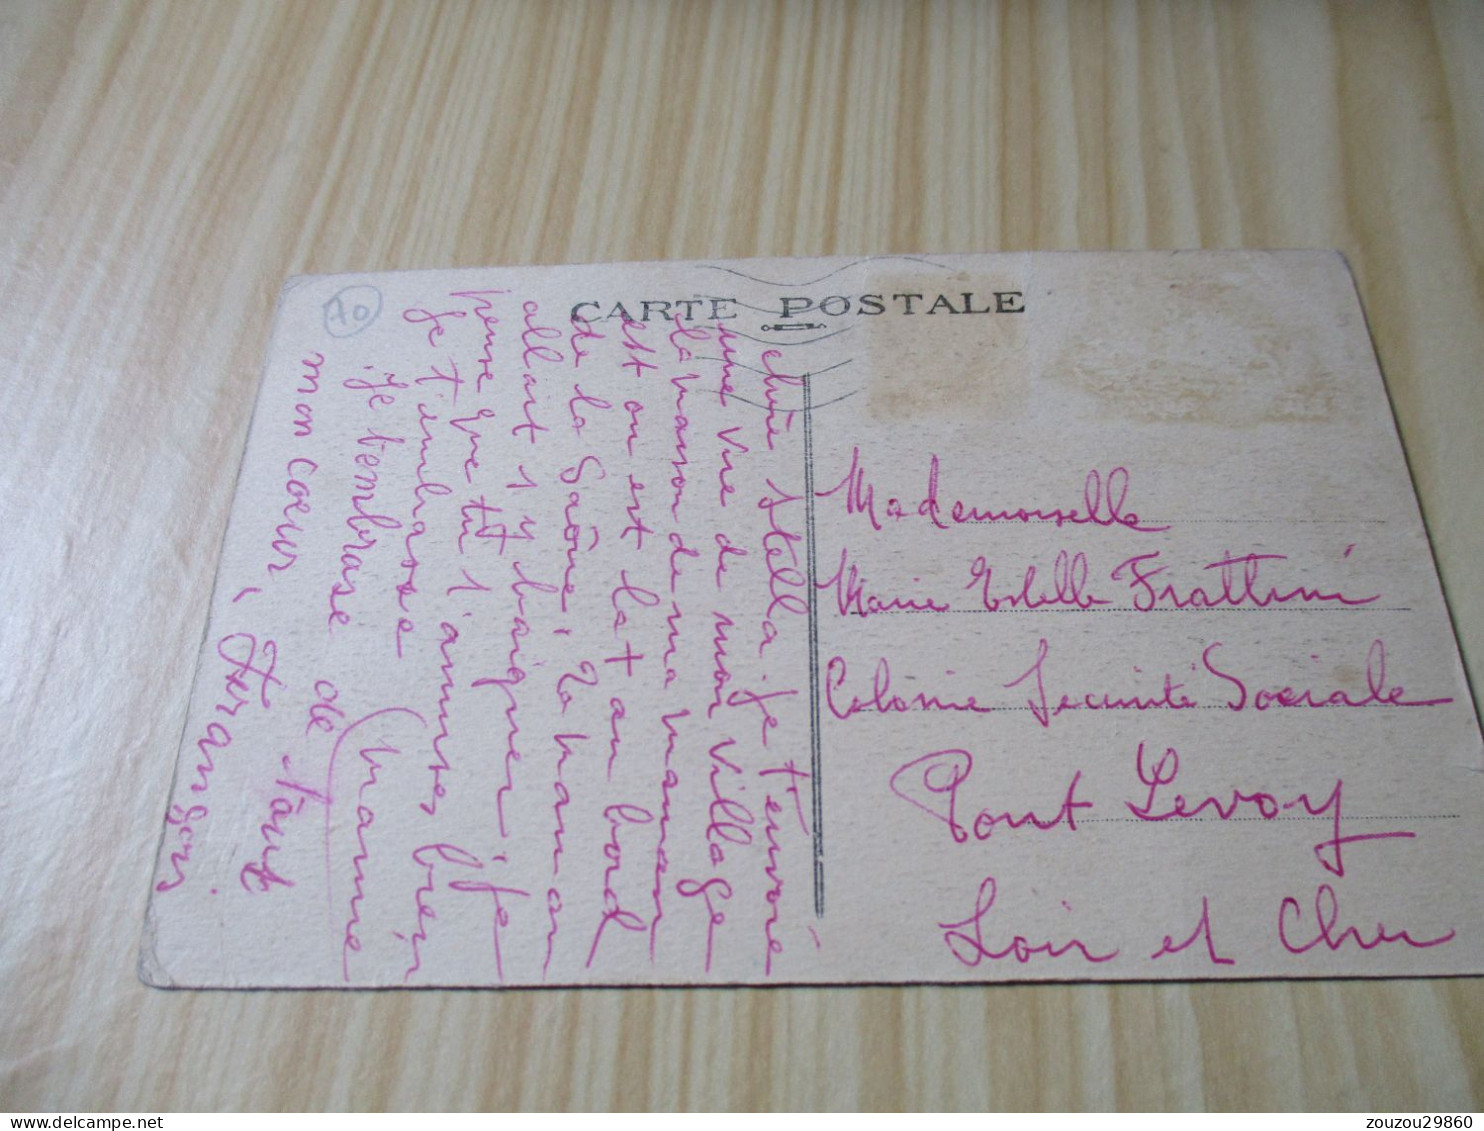 10
CARTE POSTALE
chère Stella. je t'envoie
une vue de mon village
la maison de ma maman
est ou est la + au bord
de la Saône, la maman
allait s'y baigner, je
pense que tu t'amuses bien
je t'embrasse
Mamie
je t'embrasse de tout
mon coeur,
Mademoiselle
Marie Estelle Frattini
Colonie Securité Sociale
Pont Levoy
Loir et Cher
zouzou29860